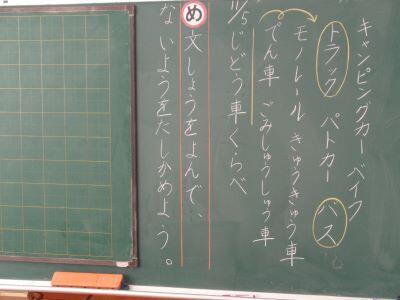 キャンピングカー バイク
トラック パトカー バス
モノレール きゅうきゅう車
でん車 ごみしゅうしゅう車
11/5 じどう車くらべ
め 文しょうをよんで、
ないようをたしかめよう。